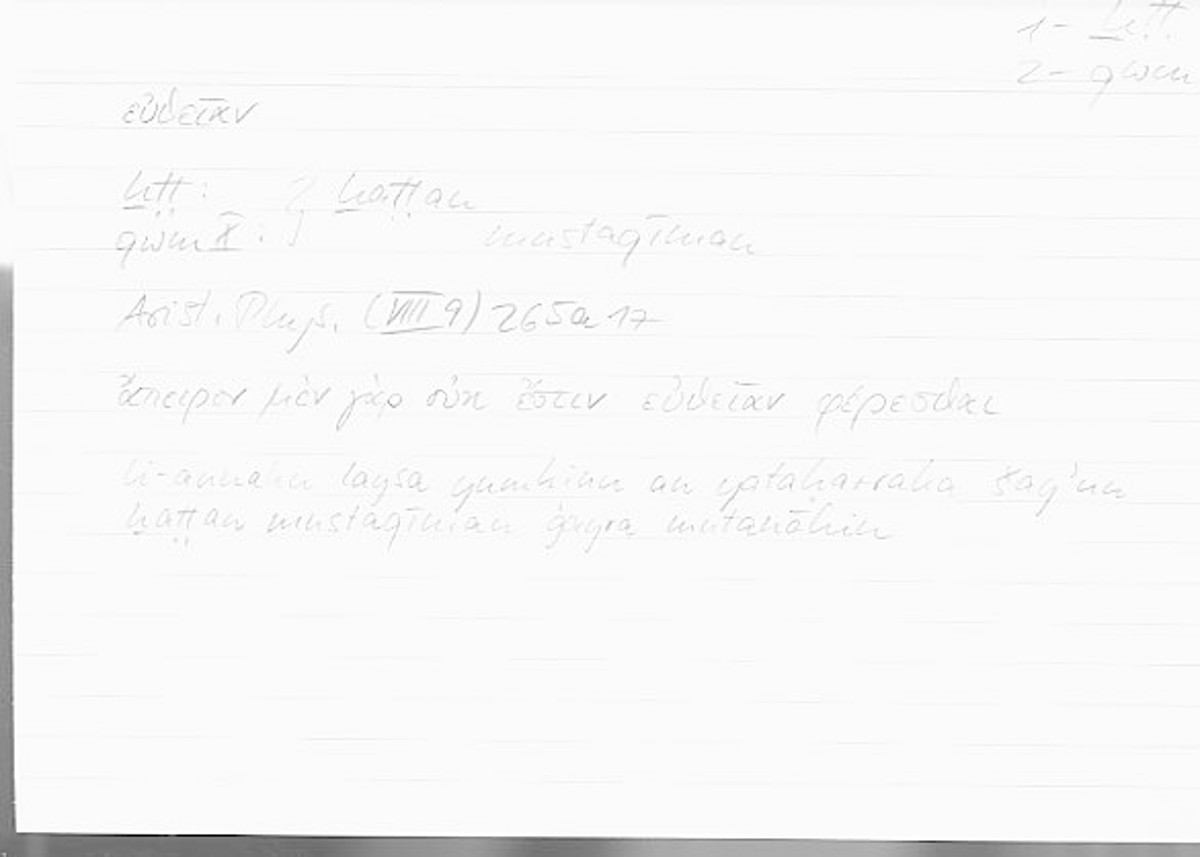 1- ḫṭṭ
2- qwm
εὐθεῖαν
ḫṭṭ : } ḫaṭṭan
qwm X : mustaqīman
Arist. Phys. (VIII 9) 265a 17
ἄπειρον μὲν γὰρ οὐκ ἔστιν εὐθεῖαν φέρεσθαι
li-annahu laysa yumkinu an yataḥarraka šay'un
ḫaṭṭan mustaqīman ġayra mutanāhin